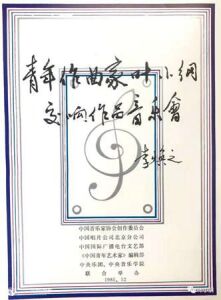 青年作曲家叶小纲
交响作品音乐會
李焕之
中国音乐家协会创作委员会
中国唱片公司北京分公司
中国国际广播电台文艺部
《中国青年艺术家》编辑部
中央乐团、中央音乐学院
联合举办
1985.12